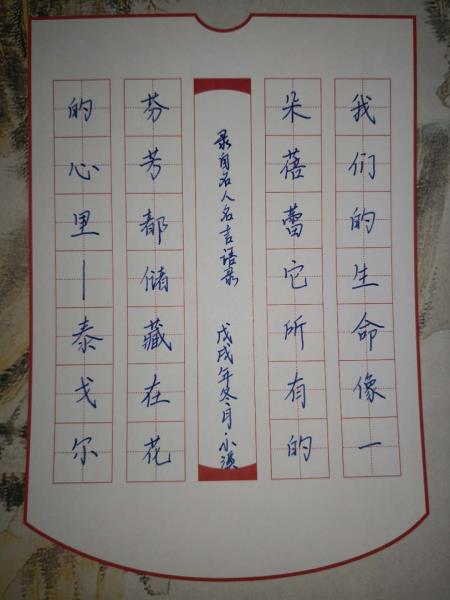 我们的生命像一
朵蓓蕾它所有的
录自名人名言语录 戊戌年冬月小溪
芬芳都储藏在花
的心里—泰戈尔